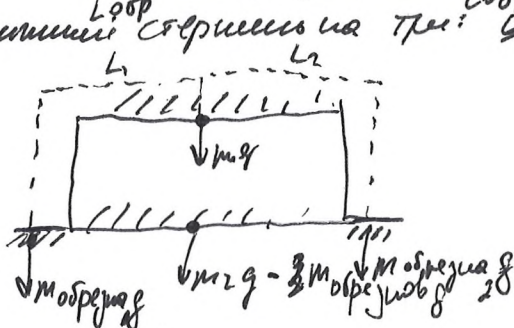 Lобр
стержень на три:
L₁ L₂
m₁g
mобрезка g m₂g - mобрезков g mобрезка g